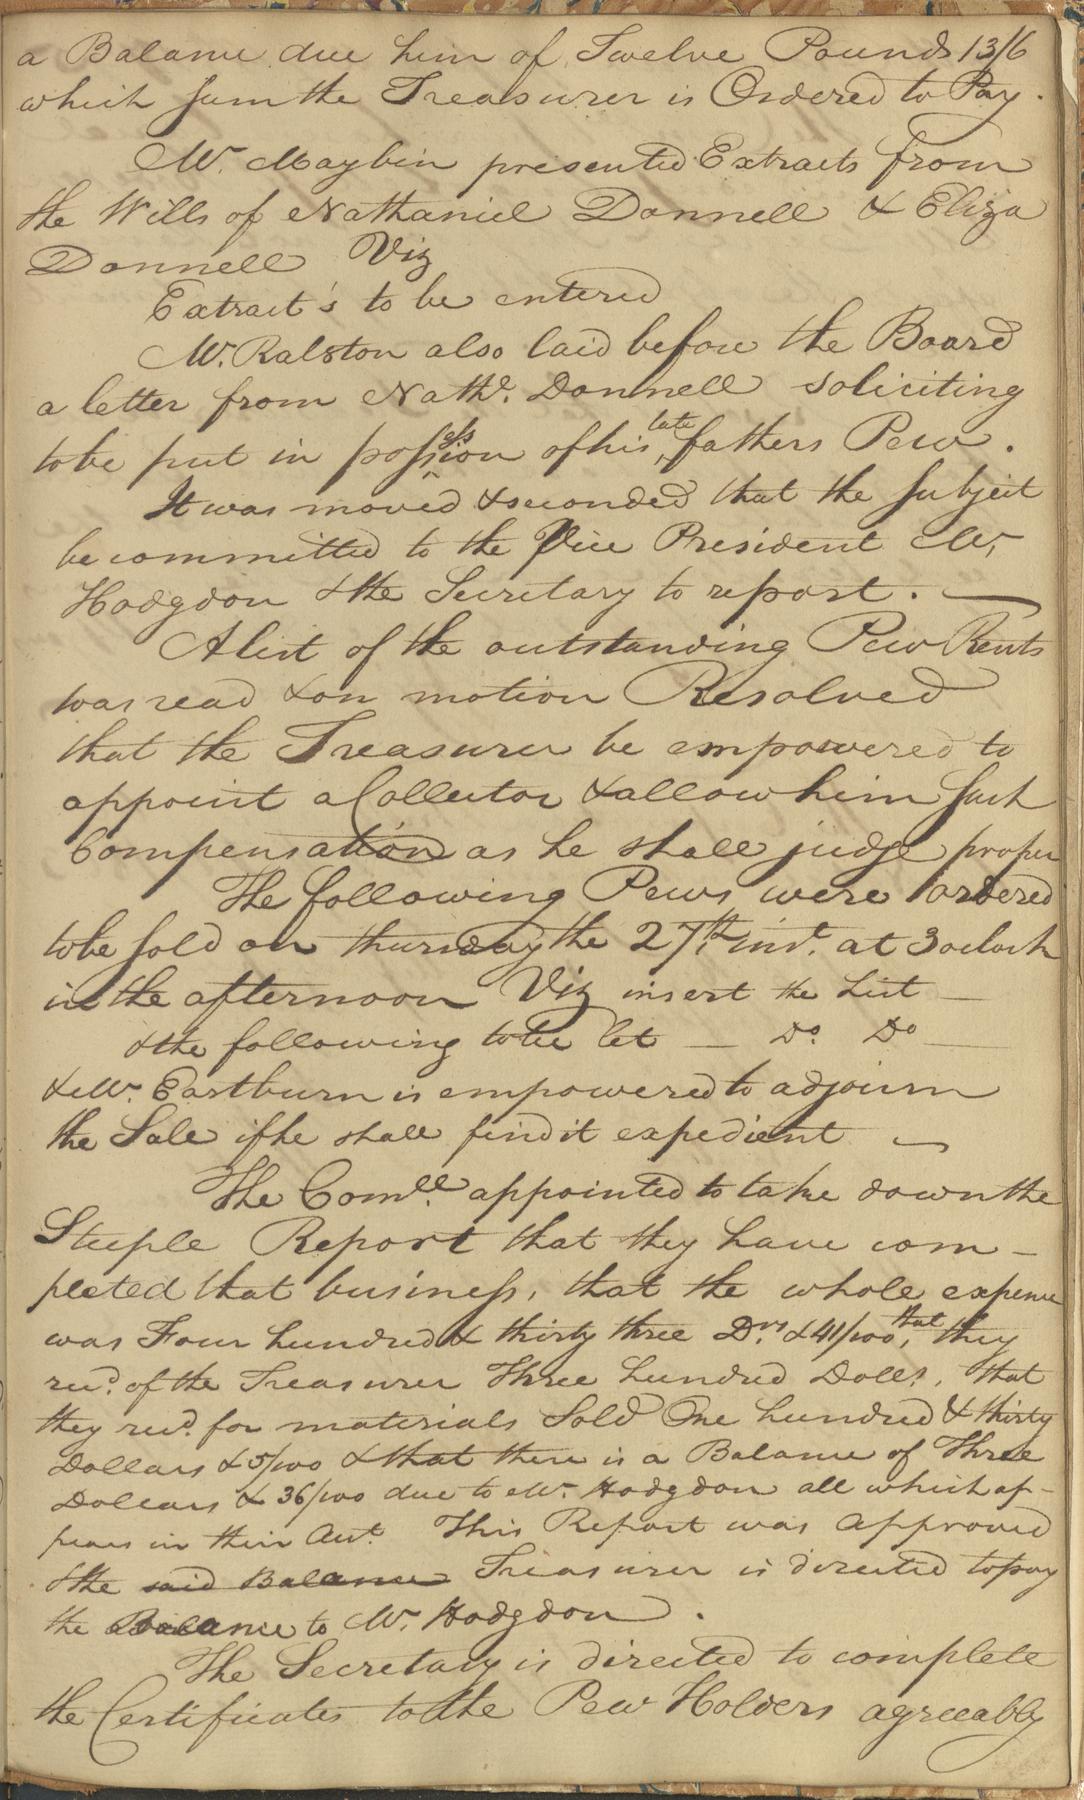 a Balance due him of Twelve Pounds 13/6
which sum the Treasurer is Ordered to Pay.
Mr. Maybin presented Extracts from
the Wills of Nathaniel Donnell & Eliza
Donnell Viz
Extract's to be entered
Mr. Ralston also laid before the Board
a letter from Nathl. Donnell soliciting
to be put in possession of his late fathers Pew.
It was moved & seconded that the subject
be committed to the Vice President Mr.
Hodgdon & the Secretary to report.
A list of the outstanding Pew Rents
was read & on motion Resolved
that the Treasurer be empowered to
appoint a Collector & allow him such
Compensation as he shall judge proper
The following Pews were ordered
to be sold on thursday the 27th. inst. at 3 oclock
in the afternoon Viz insert the List —
& the following to be let — Do. Do —
& Mr. Eastburn is empowered to adjourn
the Sale if he shall find it expedient —
The Comee. appointed to take down the
Steeple Report that they have com-
pleted that business, that the whole expence
was Four hundred & thirty three Drs. & 41/100, that they
recd. of the Treasurer Three hundred Dolls, that
they recd. for materials Sold One hundred & thirty
Dollars & 5/100 & that there is a Balance of Three
Dollars & 36/100 due to Mr. Hodgdon all which ap-
pears in their Acct. This Report was approved
& the said Balance Treasurer is directed to pay
the Balance to Mr. Hodgdon.
The Secretary is directed to complete
the Certificates to the Pew Holders agreeably